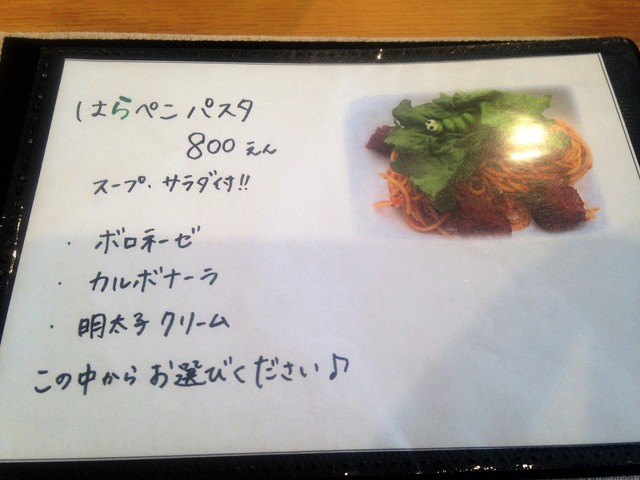 はらぺこ パスタ
800えん
スープ、サラダ付!!
・ボロネーゼ
・カルボナーラ
・明太子クリーム
この中からお選びください♪